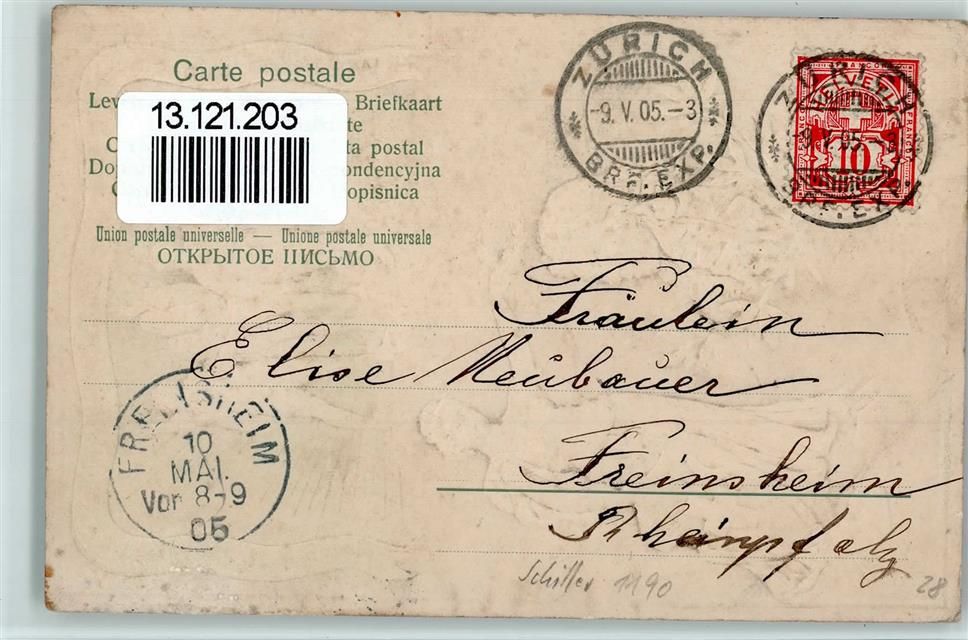 Carte postale
Lev Briefkaart
13.121.203
te
C ta postal
Do ondencyjna
opisnica
Union postale universelle — Unione postale universale
ОТКРЫТОЕ ПИСЬМО
ZÜRICH
-9.V.05.-3
BRF. EXP.
ZÜRICH
-9.V.05.-3
BRF. EXP.
FRANCO
HELVETIA
10
Fräulein
Elise Neubauer
Freinsheim
Rheinpfalz
FREINSHEIM
10
MAI.
Vor 8-9
05
Schiller 1190
28